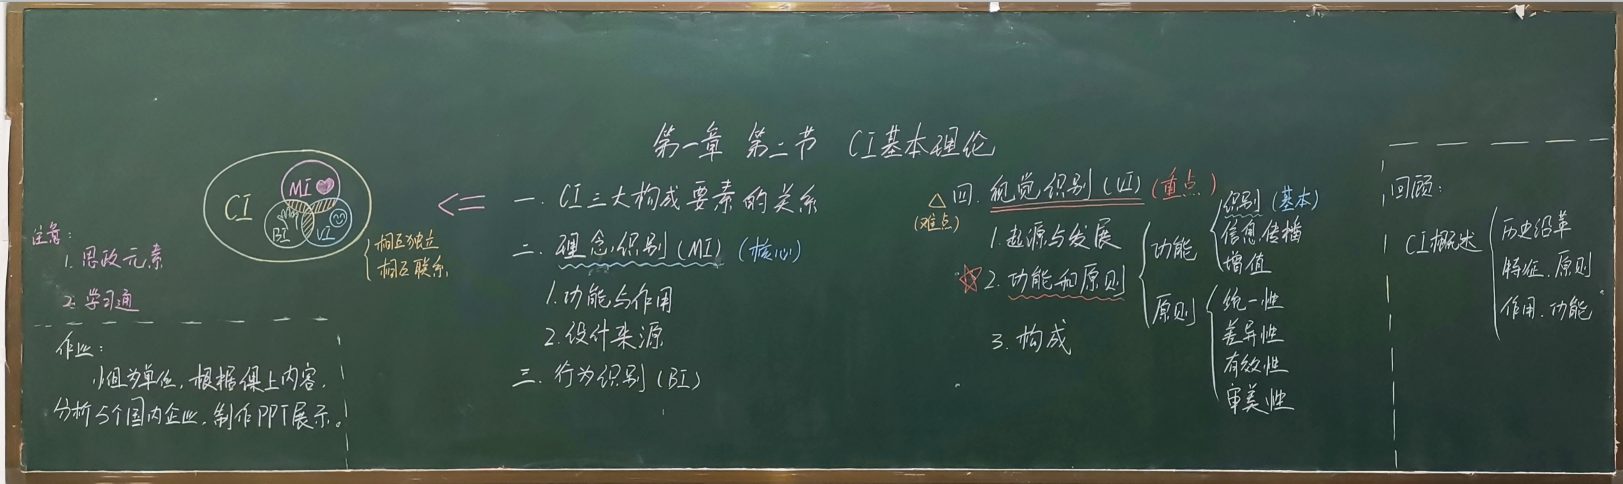 第一章 第二节 CI基本理论
注意：
1. 思政元素
2. 学习通
作业：
小组为单位，根据课上内容，
分析5个国内企业，制作PPT展示。
CI
MI
BI
VI
相互独立
相互联系
一. CI三大构成要素的关系
二. 理念识别(MI) (核心)
1. 功能与作用
2. 设计来源
三. 行为识别(BI)
△
(难点)
四. 视觉识别(VI) (重点)
1. 起源与发展
2. 功能和原则
3. 构成
功能
识别 (基本)
信息传播
增值
原则
统一性
差异性
有效性
审美性
回顾：
CI概述
历史沿革
特征、原则
作用、功能